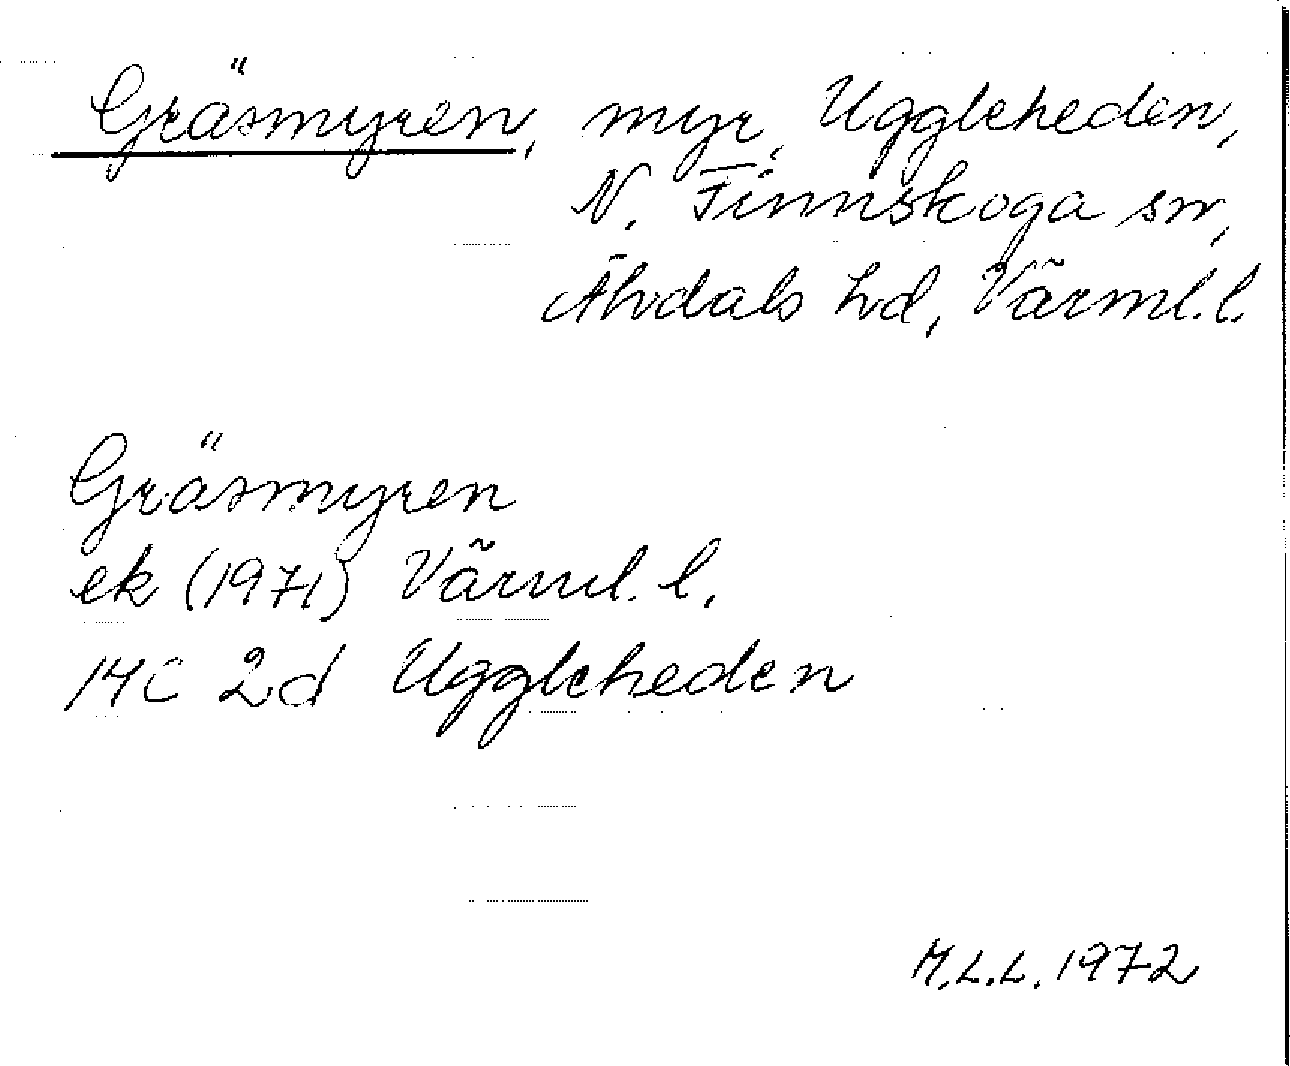 Gräsmyren, myr, Uggleheden,
N. Finnskoga sn,
Älvdals hd, Värml. l.
Gräsmyren
ek (1971) Värml. l.
14C 2d Uggleheden
M.L.L. 1972